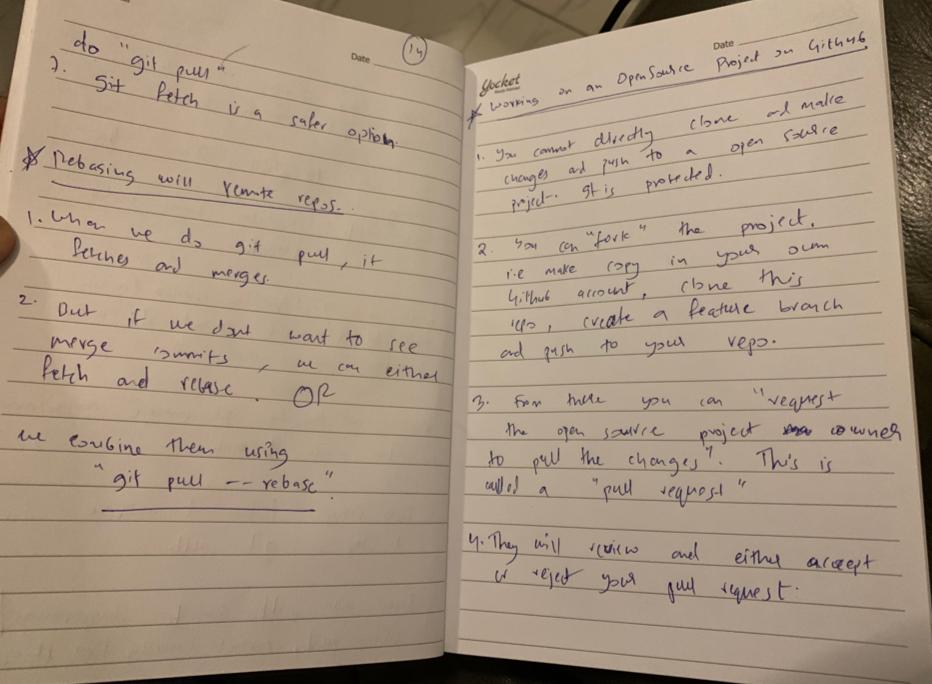 Date
14
do "git pull"
7.
Git fetch is a safer option.
Rebasing will remote repos.
1. When we do git pull, it
fetches and merges.
2. But if we dont want to see
merge commits, we can either
fetch and rebase. OR
we combine them using
"git pull -- rebase".
yocket
Date
Working on an OpenSource Project on Github
1. You cannot directly clone and make
changes and push to a open source
project. It is protected.
2. You can "fork" the project.
i.e make copy in your own
Github account, clone this
repo, create a feature branch
and push to your repo.
3. From there you can "request
the open source project owner
to pull the changes". This is
called a "pull request"
4. They will review and either accept
or reject your pull request.